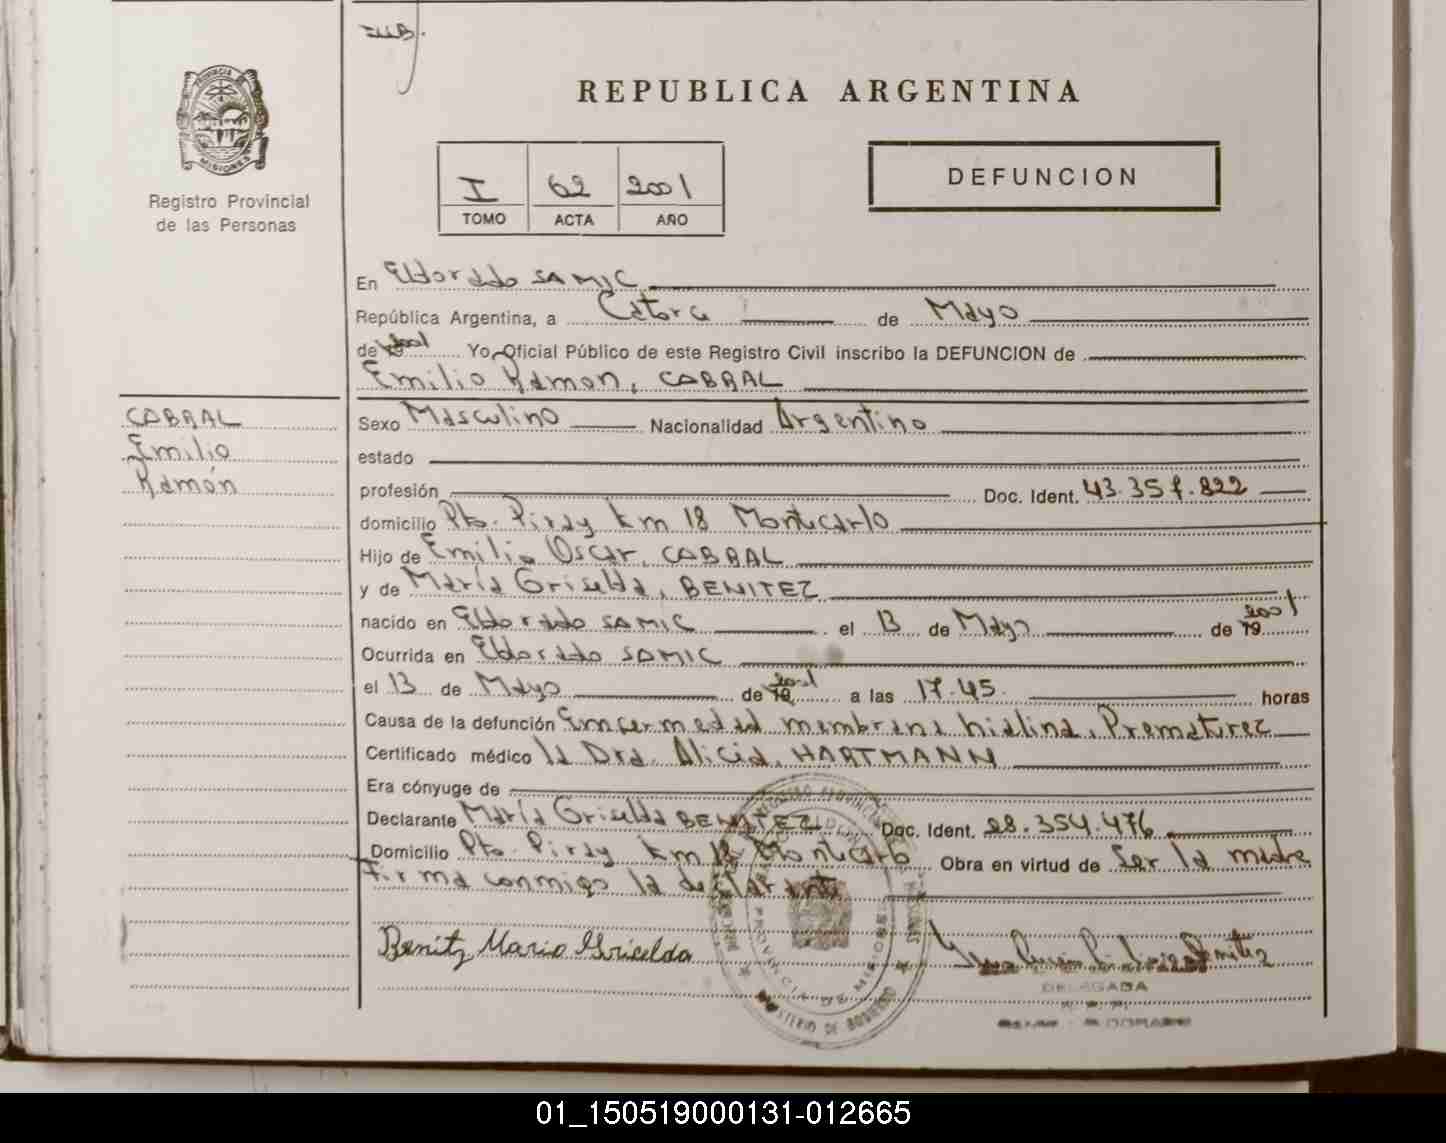 REPUBLICA ARGENTINA
PROVINCIA
MISIONES
Registro Provincial
de las Personas
I 62 2001
TOMO ACTA AÑO
DEFUNCION
En Eldorado SAMIC
República Argentina, a Catorce de Mayo
de 2001 Yo, Oficial Público de este Registro Civil inscribo la DEFUNCION de
Emilio Ramon, CABRAL
CABRAL
Emilio
Ramón
Sexo Masculino Nacionalidad Argentino
estado
profesión Doc. Ident. 43.357.822
domicilio Pto. Piray Km 18 Montecarlo
Hijo de Emilio Oscar, CABRAL
y de María Griselda, BENITEZ
nacido en Eldorado SAMIC el 13 de Mayo de 19 2001
Ocurrida en Eldorado SAMIC
el 13 de Mayo de 19 2001 a las 17.45. horas
Causa de la defunción Enfermedad membrana hialina, Prematurez
Certificado médico la Dra. Alicia, HARTMANN
Era cónyuge de
Declarante María Griselda BENITEZ Doc. Ident. 28.354.476
Domicilio Pto. Piray Km 18 Montecarlo Obra en virtud de ser la madre
Firma conmigo la declarante
Benitz Maria Gricelda
DELEGADA
PROVINCIA DE MISIONES
MINISTERIO DE GOBIERNO
01_150519000131-012665